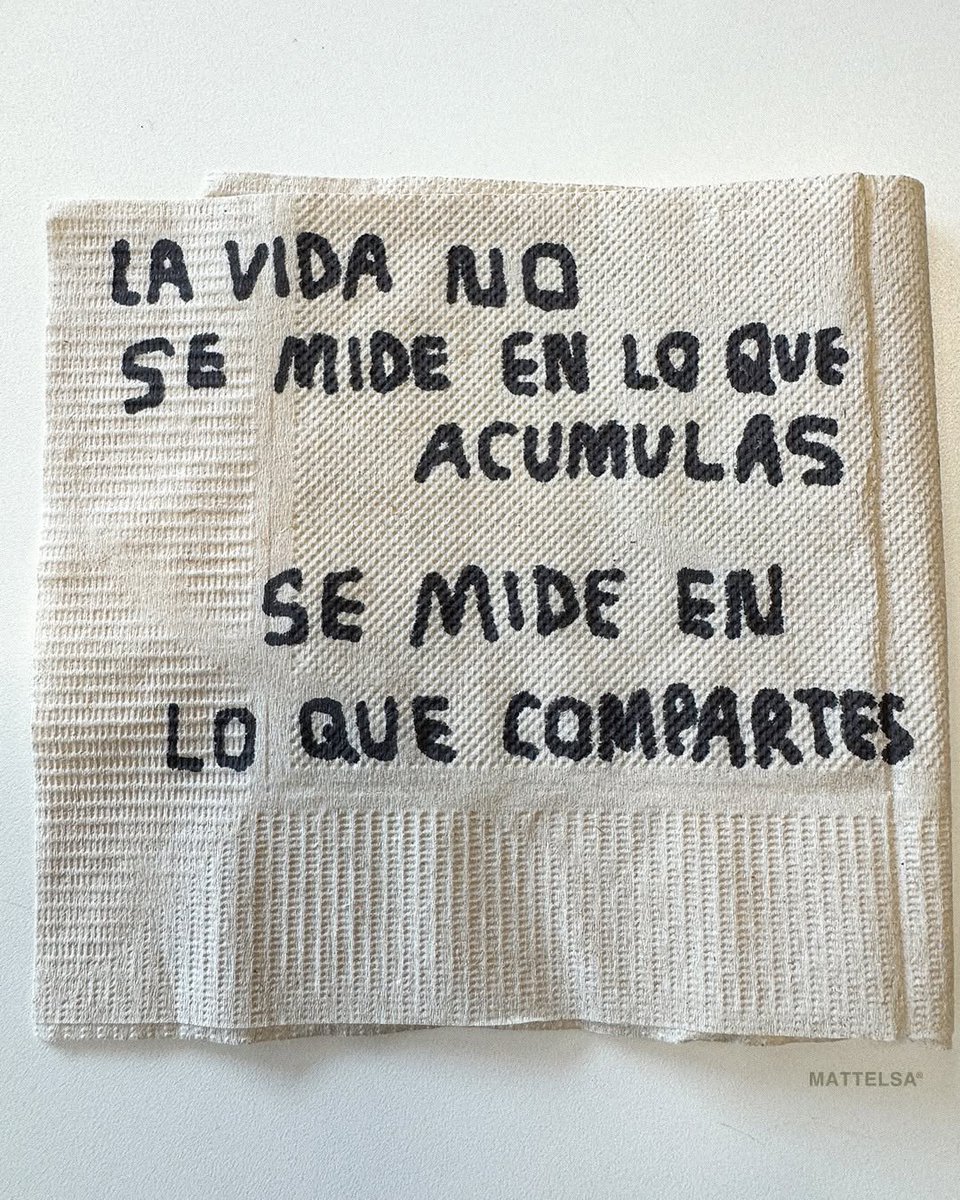 LA VIDA NO
SE MIDE EN LO QUE
ACUMULAS
SE MIDE EN
LO QUE COMPARTES
MATTELSA®